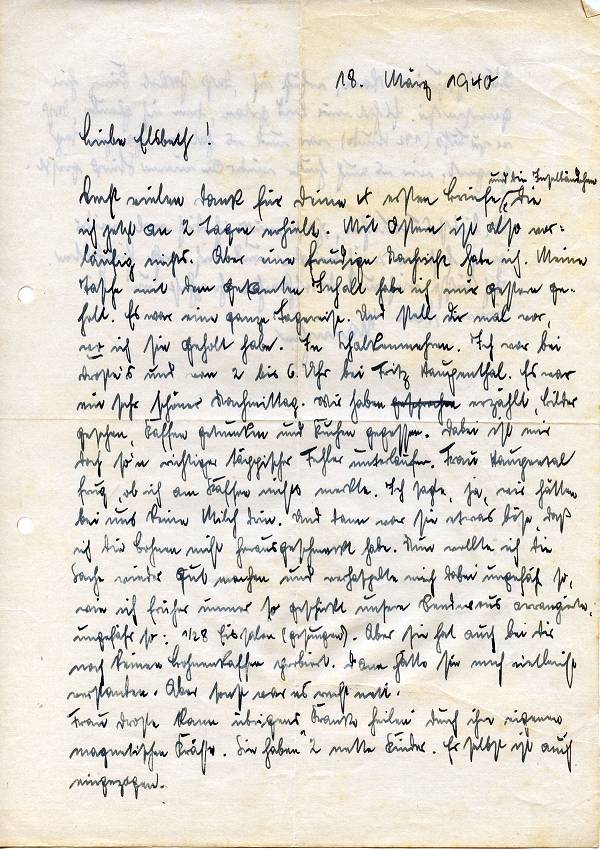 18. März 1940
Liebe Elsbeth!
und die Inselbändchen
Erst vielen Dank für Deine ersten Briefe, die
ich jetzt an 2 Tagen erhielt. Mit Ostern ist also vor-
läufig nichts. Aber eine freudige Nachricht habe ich. Meine
Tasche mit dem gesamten Inhalt habe ich mir gestern ge-
holt. Es war eine ganze Tagereise. Und stell dir mal vor,
wo ich sie geholt habe. In Schalkenmehren. Ich war bei
Droste's und von 2 bis 6 Uhr bei Fritz Haugenthal. Es war
ein sehr schöner Nachmittag. Wir haben gesprochen erzählt, Bilder
gesehen, Kaffee getrunken und Kuchen gegessen. Dabei ist mir
doch so'n richtiger läppischer Fehler unterlaufen. Frau Haugental
frug, ob ich am Kaffee nichts merkte. Ich sagte, ja, wir hätten
bei uns keine Milch drin. Und dann war sie etwas böse, daß
ich die Bohnen nicht herausgeschmeckt habe. Nun wollte ich die
Sache wieder gut machen und verhaspelte mich dabei ungefähr so,
wie ich früher immer so geschickt unsere Rendevous arrangierte,
ungefähr so: 1/28 Eissalon (gesungen). Aber sie hat auch bei dir
noch keinen Bohnenkaffee probiert. Dann hätte sie mich vielleicht
verstanden. Aber sonst war es recht nett.
Frau Droste kann übrigens Kranke heilen durch ihre eigenen
magnetischen Kräfte. Sie haben 2 nette Kinder. Er selbst ist auch
eingezogen.